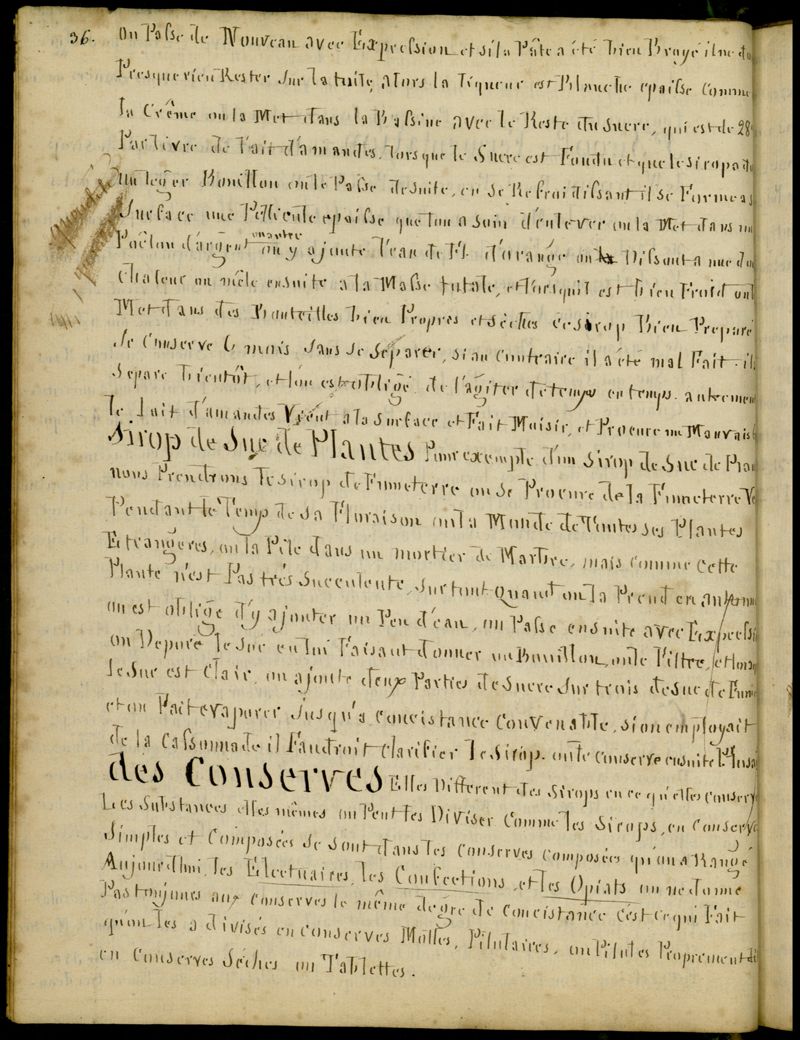 36.
on Passe de Nouveau avec Expression et si la Pâte a été bien Broyé il ne do
Presque rien Rester sur la tuile, alors la Liqueur est Blanche epaisse comme
la Crême on la Met dans la Bassine avec le Reste du sucre, qui est de 28
Par livre de lait d'amandes, lorsque le Sucre est Fondu et que le sirop a
un leger Bouillon on le Passe de suite, en se Refroidissant il se Forme a s
Surface une Pellicule epaisse que lon a soin d'enlever on la Met dans un
Poêlon d'argent on y ajoute l'eau de Fl. d'orange on Dissout a une do
Chaleur on mêle ensuite a la Masse totale, et lorsquil est bien Froid on
Met dans des Bouteilles bien Propres et séches ce sirop Bien Preparé
se Conserve 6 mois sans se séparer, si au contraire il a été mal Fait. il
Separe bientôt, et l'on est obligé de l'agiter de temps en temps. autremen
le lait d'amandes Vient a la surface et Fait Moisir, et Procure un Mauvais
Sirop de Suc de Plantes Pour exemple d'un sirop de Suc de Plan
nous Prendrons le sirop de Fumeterre on se Procure de la Fumeterre
Pendant le Temps de sa Floraison on la Monde de Toutes ses Plantes
Etrangeres, on la Pile dans un mortier de Marbre, mais comme cette
Plante n'est Pas trés Succulente, surtout Quand on la Prend en automn
on est obligé d'y ajouter un Peu d'eau, on Passe ensuite avec Expressi
on Depure le suc en lui Faisant donner un Bouillon, on le Filtre, et lorsq
le Suc est Clair, on ajoute deux Parties de Sucre sur trois de suc de Fume
et on Fait evaporer Jusqu'a concistance Convenable, si on employait
de la Cassonnade il Faudroit Clarifier le sirop. on le conserve ensuite
des Conserves Elles Different des sirops en ce qu'elles conserv
Les Substances elles mêmes on Peut les Diviser Comme les Sirops, en Conserve
Simples et Composées Se sont dans les Conserves composées qu'on a Rangé
Aujourdhui, les Electuaires, les Confections, et les Opiats on ne donne
Pas toujours aux conserves le même degré de concistance c'est ce qui Fait
qu'on les a divisés en conserves Molles, Pilulaires, ou Pilules Proprement di
en Conserves Séches ou Tablettes.